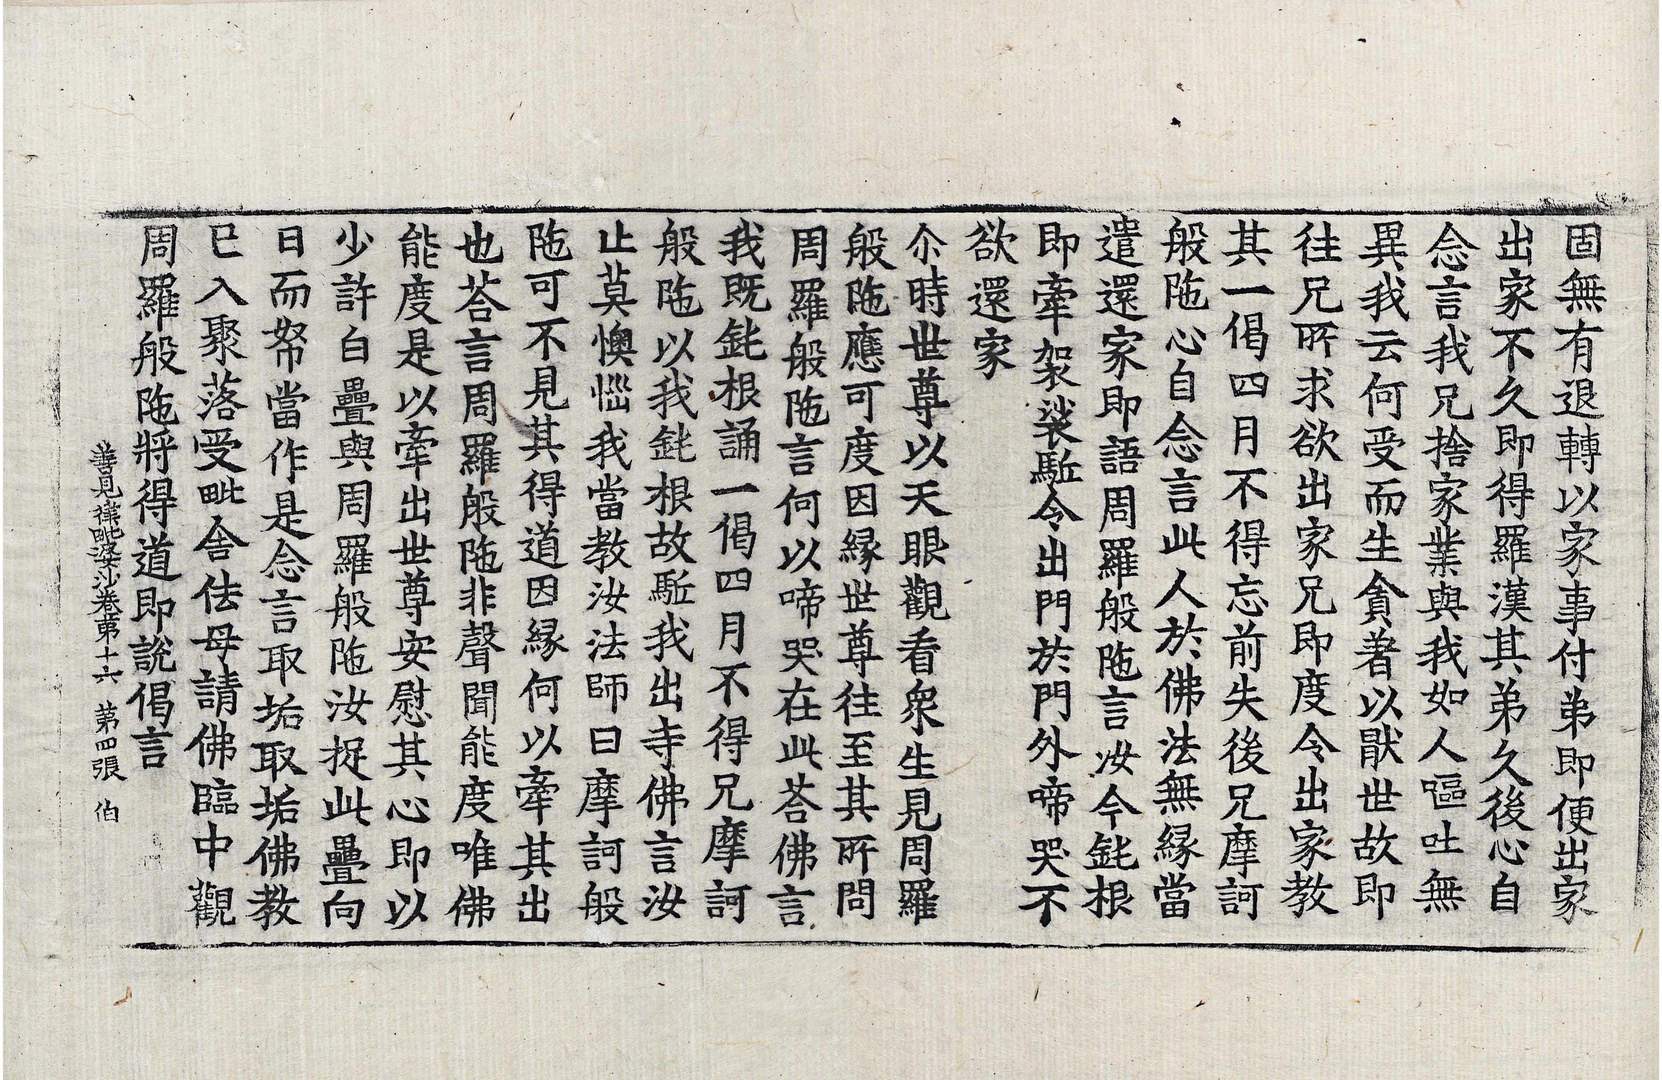 固無有退轉以家事付弟即便出家
出家不久即得羅漢其弟久後心自
念言我兄捨家業與我如人嘔吐無
異我云何受而生貪著以猒世故即
往兄所求欲出家兄即度令出家教
其一偈四月不得忘前失後兄摩訶
般陁心自念言此人於佛法無緣當
遣還家即語周羅般陁言汝今鈍根
即牽袈裟駈令出門於門外啼哭不
欲還家
尒時世尊以天眼觀看衆生見周羅
般陁應可度因緣世尊往至其所問
周羅般陁言何以啼哭在此荅佛言
我既鈍根誦一偈四月不得兄摩訶
般陁以我鈍根故駈我出寺佛言汝
止莫懊惱我當教汝法師曰摩訶般
陁可不見其得道因緣何以牽其出
也荅言周羅般陁非聲聞能度唯佛
能度是以牽出世尊安慰其心即以
少許白疊與周羅般陁汝捉此疊向
日而帑當作是念言取垢取垢佛教
已入聚落受毗舍佉母請佛臨中觀
周羅般陁將得道即說偈言
善見律毗婆沙卷第十六 第四張 伯